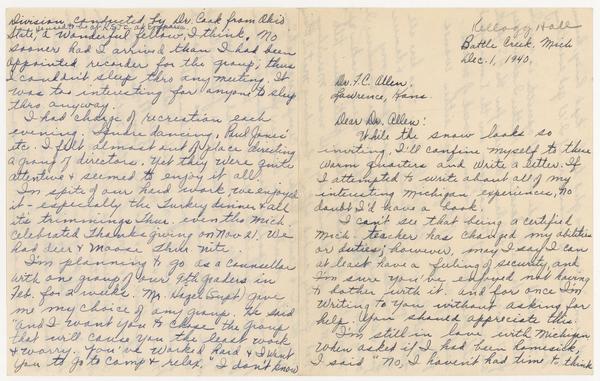 Kellogg Hall
Battle Creek, Mich
Dec. 1, 1940.
Dr. F.C. Allen,
Lawrence, Kans
Dear Dr. Allen:
While the snow looks so
inviting, I'll confine myself to these
warm quarters and write a letter. If
I attempted to write about all of my
interesting Michigan experiences, no
doubt I'd have a book.
I can't see that being a certified
Mich. teacher has changed my abilities
or duties; however, may I say I can
at least have a feeling of security, and
I'm sure you've enjoyed not having
to bother with it. and for once I'm
writing to you without asking for
help. You should appreciate this.
I'm still in love with Michigan
When asked if I had been homesick,
I said "No, I haven't had time to think
Division, conducted by Dr. Cook from Ohio
State, a wonderful fellow, I think. No
sooner had I arrived than I had been
appointed recorder for the group; thus
I couldn't sleep thro any meeting. It
was too interesting for anyone to sleep
thro anyway.
I had charge of recreation each
evening. Square dancing, Paul Jones'
etc. I felt almost out of place directing
a group of directors. Yet they were quite
attentive & seemed to enjoy it all.
In spite of our hard work we enjoyed
it - especially the Turkey dinner & all
its trimmings Thur. even tho Mich.
celebrated Thanksgiving on Nov 21. We
had deer & Moose Thur. nite.
I'm planning to go as a counsellor
with one group of our 9th graders in
Feb. for 2 weeks. Mr. (Supt) gave
me my choice of any group. He said
"and I want you to choose the group
that will cause you the least work
& worry. You've worked hard & I want
you to go to camp & relax. I don't know